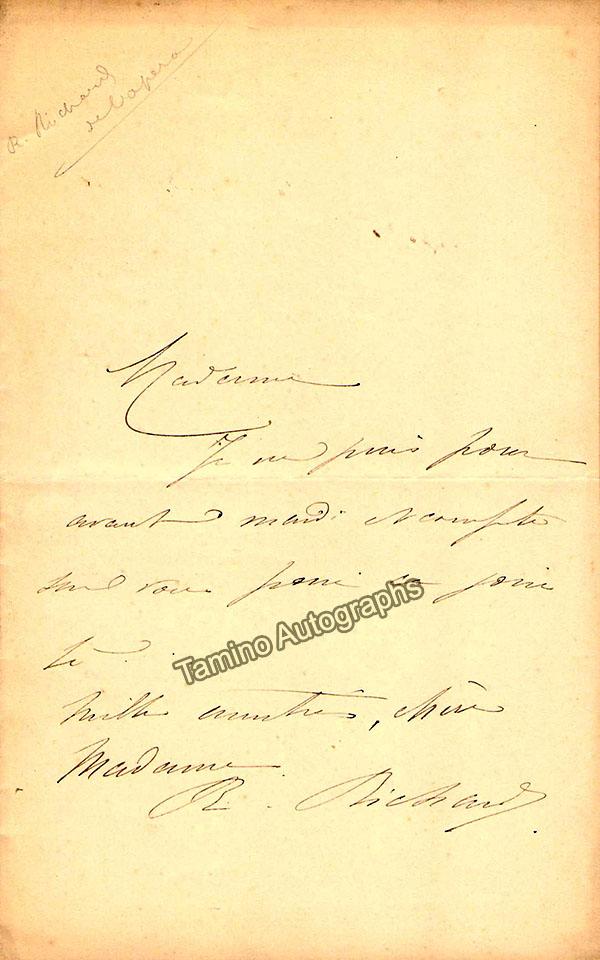 R. Richard
de l'opera
Madame
Je ne puis pour
avant mardi et compte
sur vous pour ce jour
là.
Mille amitiés, chère
Madame
R. Richard
Tamino Autographs